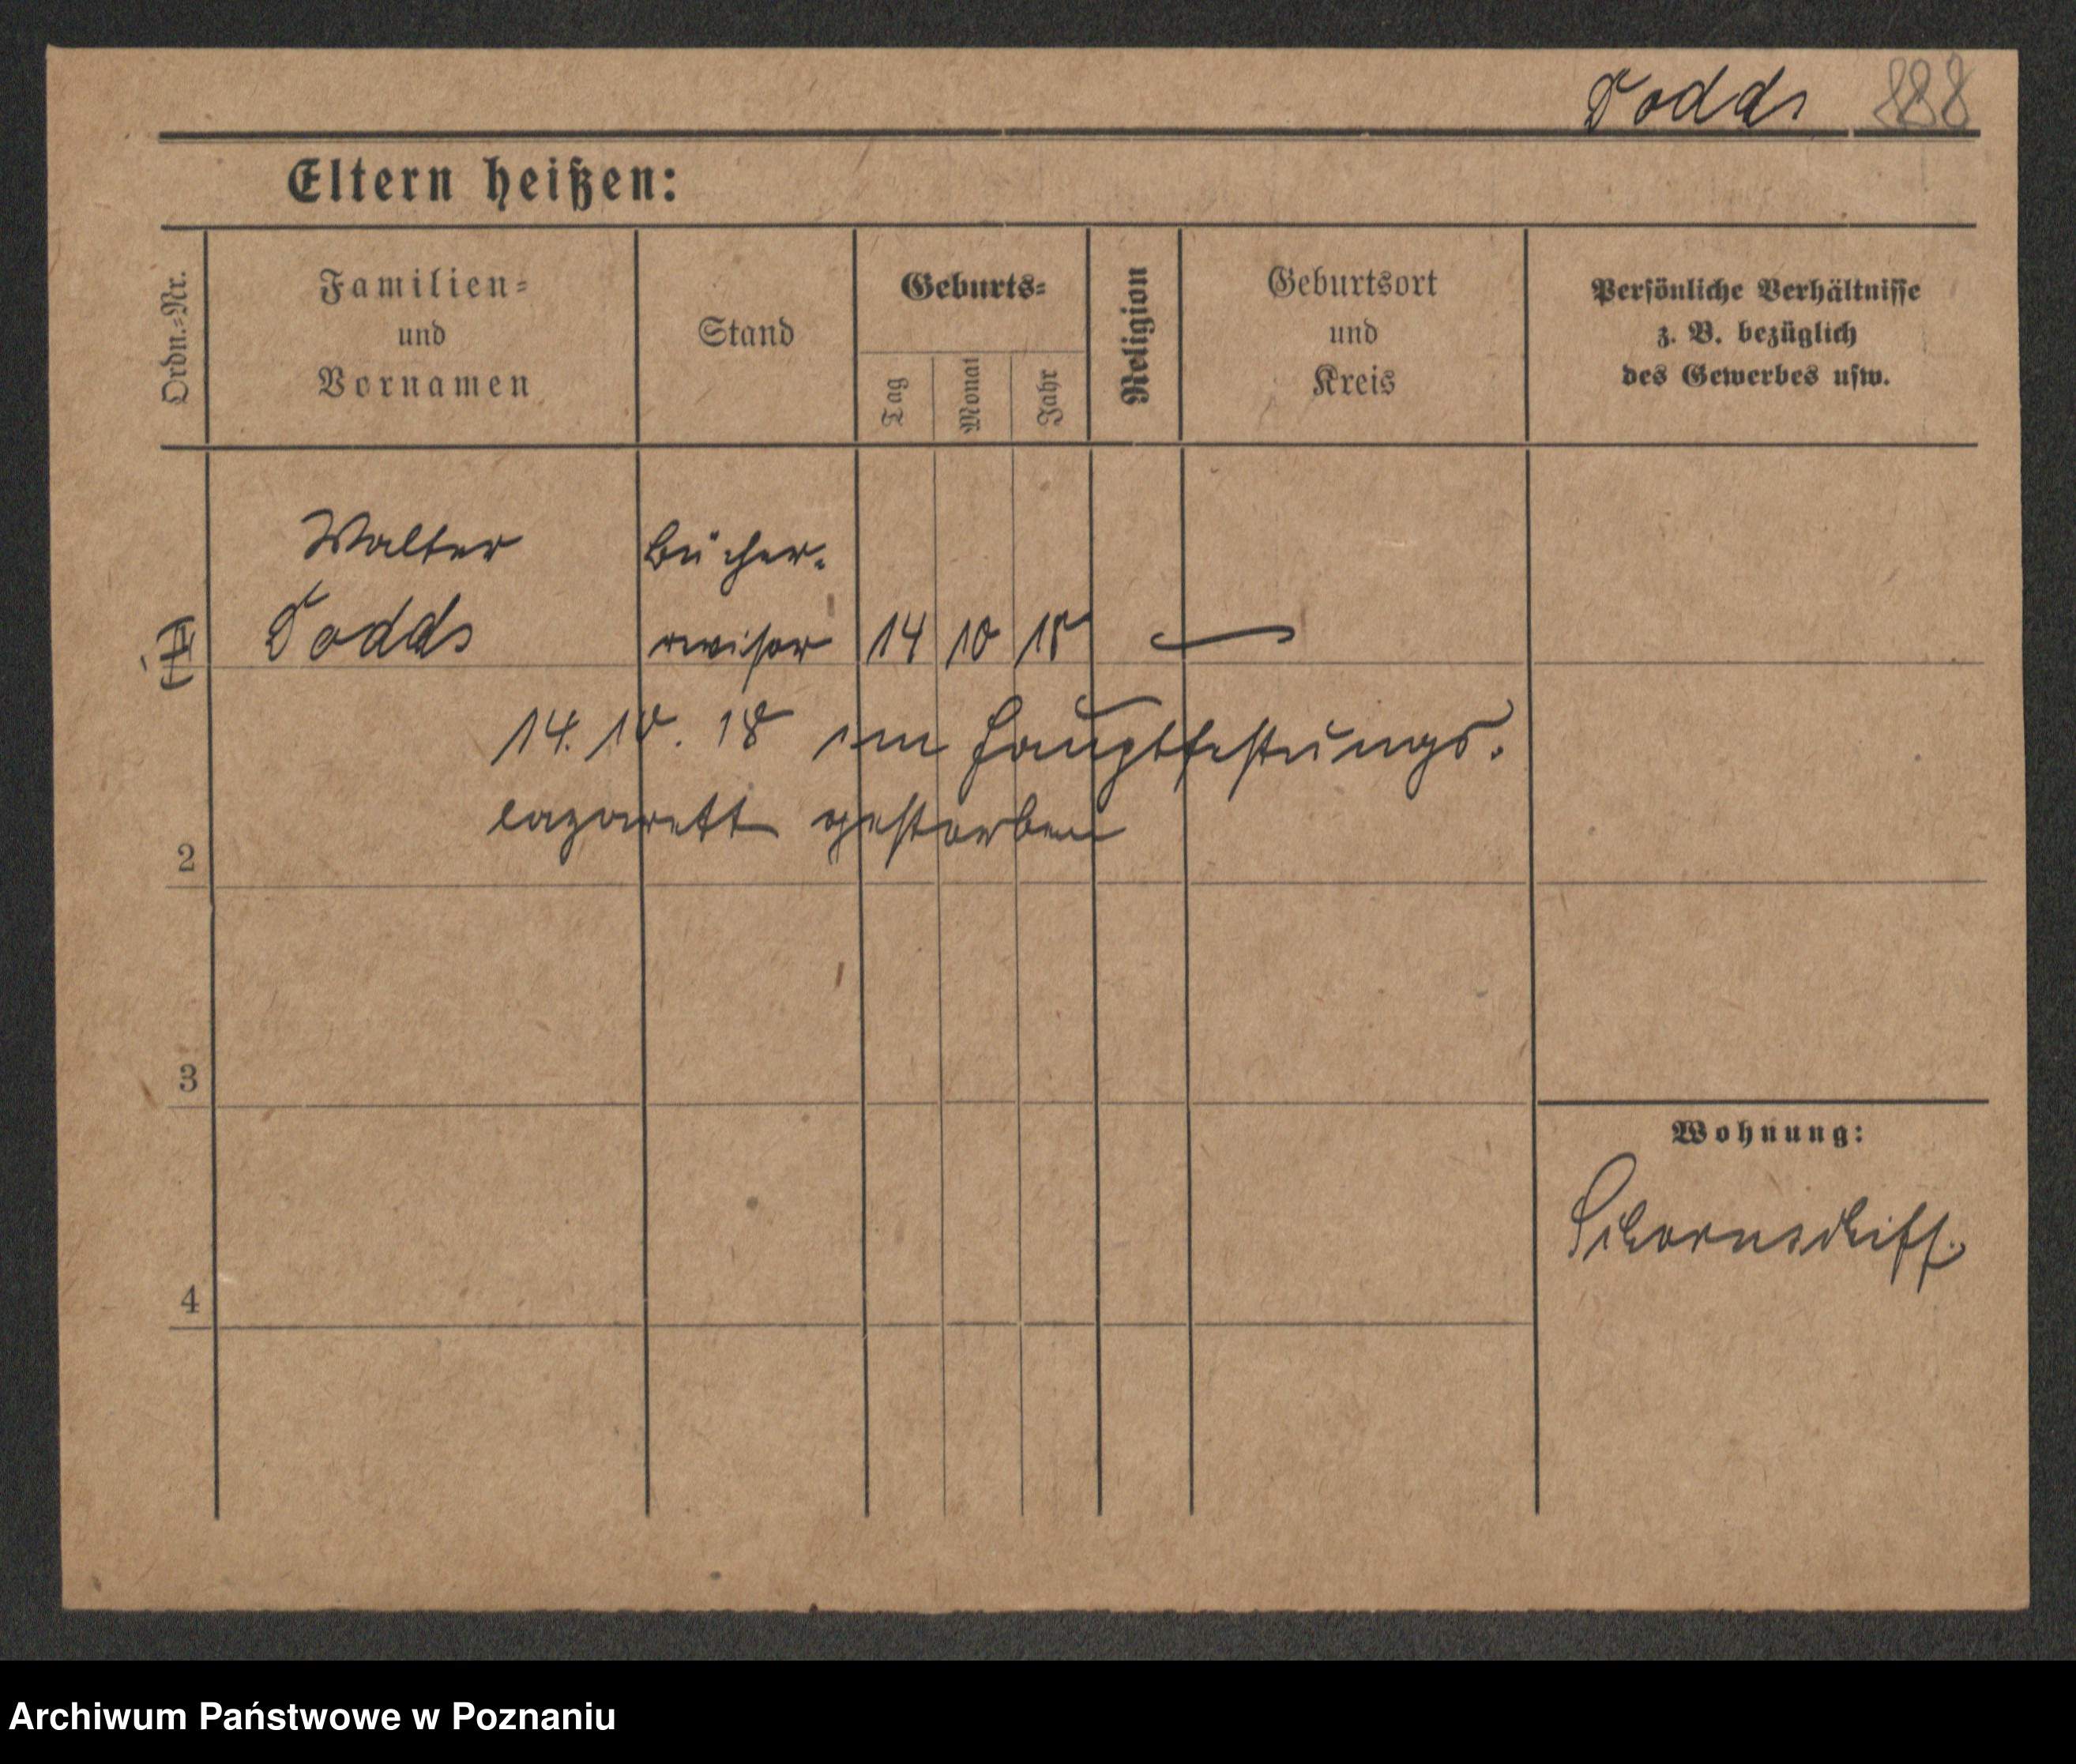 Todds 188
Eltern heißen:
Ordn.-Nr.
Familien-
und
Vornamen
Stand
Geburts-
Tag
Monat
Jahr
Religion
Geburtsort
und
Kreis
Persönliche Verhältnisse
z. B. bezüglich
des Gewerbes usw.
Walter
Todds
Bücher-
revisor
14 10 18
14. 10. 18 im Hauptfestungs-
lazarett gestorben
2
3
4
Wohnung:
Archiwum Państwowe w Poznaniu